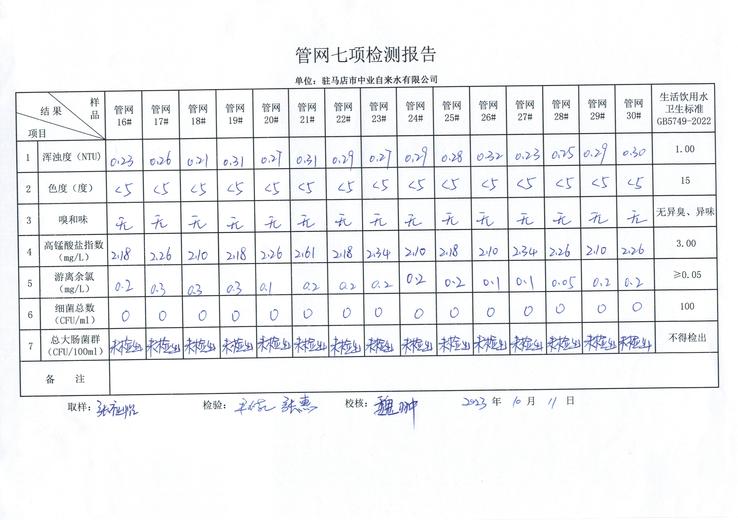 管网七项检测报告
单位：驻马店市中业自来水有限公司
样品 结果 项目 管网16# 管网17# 管网18# 管网19# 管网20# 管网21# 管网22# 管网23# 管网24# 管网25# 管网26# 管网27# 管网28# 管网29# 管网30# 生活饮用水卫生标准GB5749-2022
1 浑浊度（NTU） 0.23 0.26 0.21 0.31 0.27 0.31 0.29 0.27 0.29 0.28 0.32 0.23 0.25 0.29 0.30 1.00
2 色度（度） <5 <5 <5 <5 <5 <5 <5 <5 <5 <5 <5 <5 <5 <5 <5 15
3 嗅和味 无 无 无 无 无 无 无 无 无 无 无 无 无 无 无 无异臭、异味
4 高锰酸盐指数（mg/L） 2.18 2.26 2.10 2.18 2.26 2.61 2.18 2.34 2.10 2.18 2.10 2.34 2.26 2.10 2.26 3.00
5 游离余氯（mg/L） 0.2 0.3 0.3 0.3 0.1 0.2 0.2 0.2 0.2 0.2 0.1 0.1 0.05 0.2 0.2 ≥0.05
6 细菌总数（CFU/ml） 0 0 0 0 0 0 0 0 0 0 0 0 0 0 0 100
7 总大肠菌群（CFU/100ml） 未检出 未检出 未检出 未检出 未检出 未检出 未检出 未检出 未检出 未检出 未检出 未检出 未检出 未检出 未检出 不得检出
备 注
取样： 检验： 张惠 校核： 魏翀 2023 年 10 月 11 日